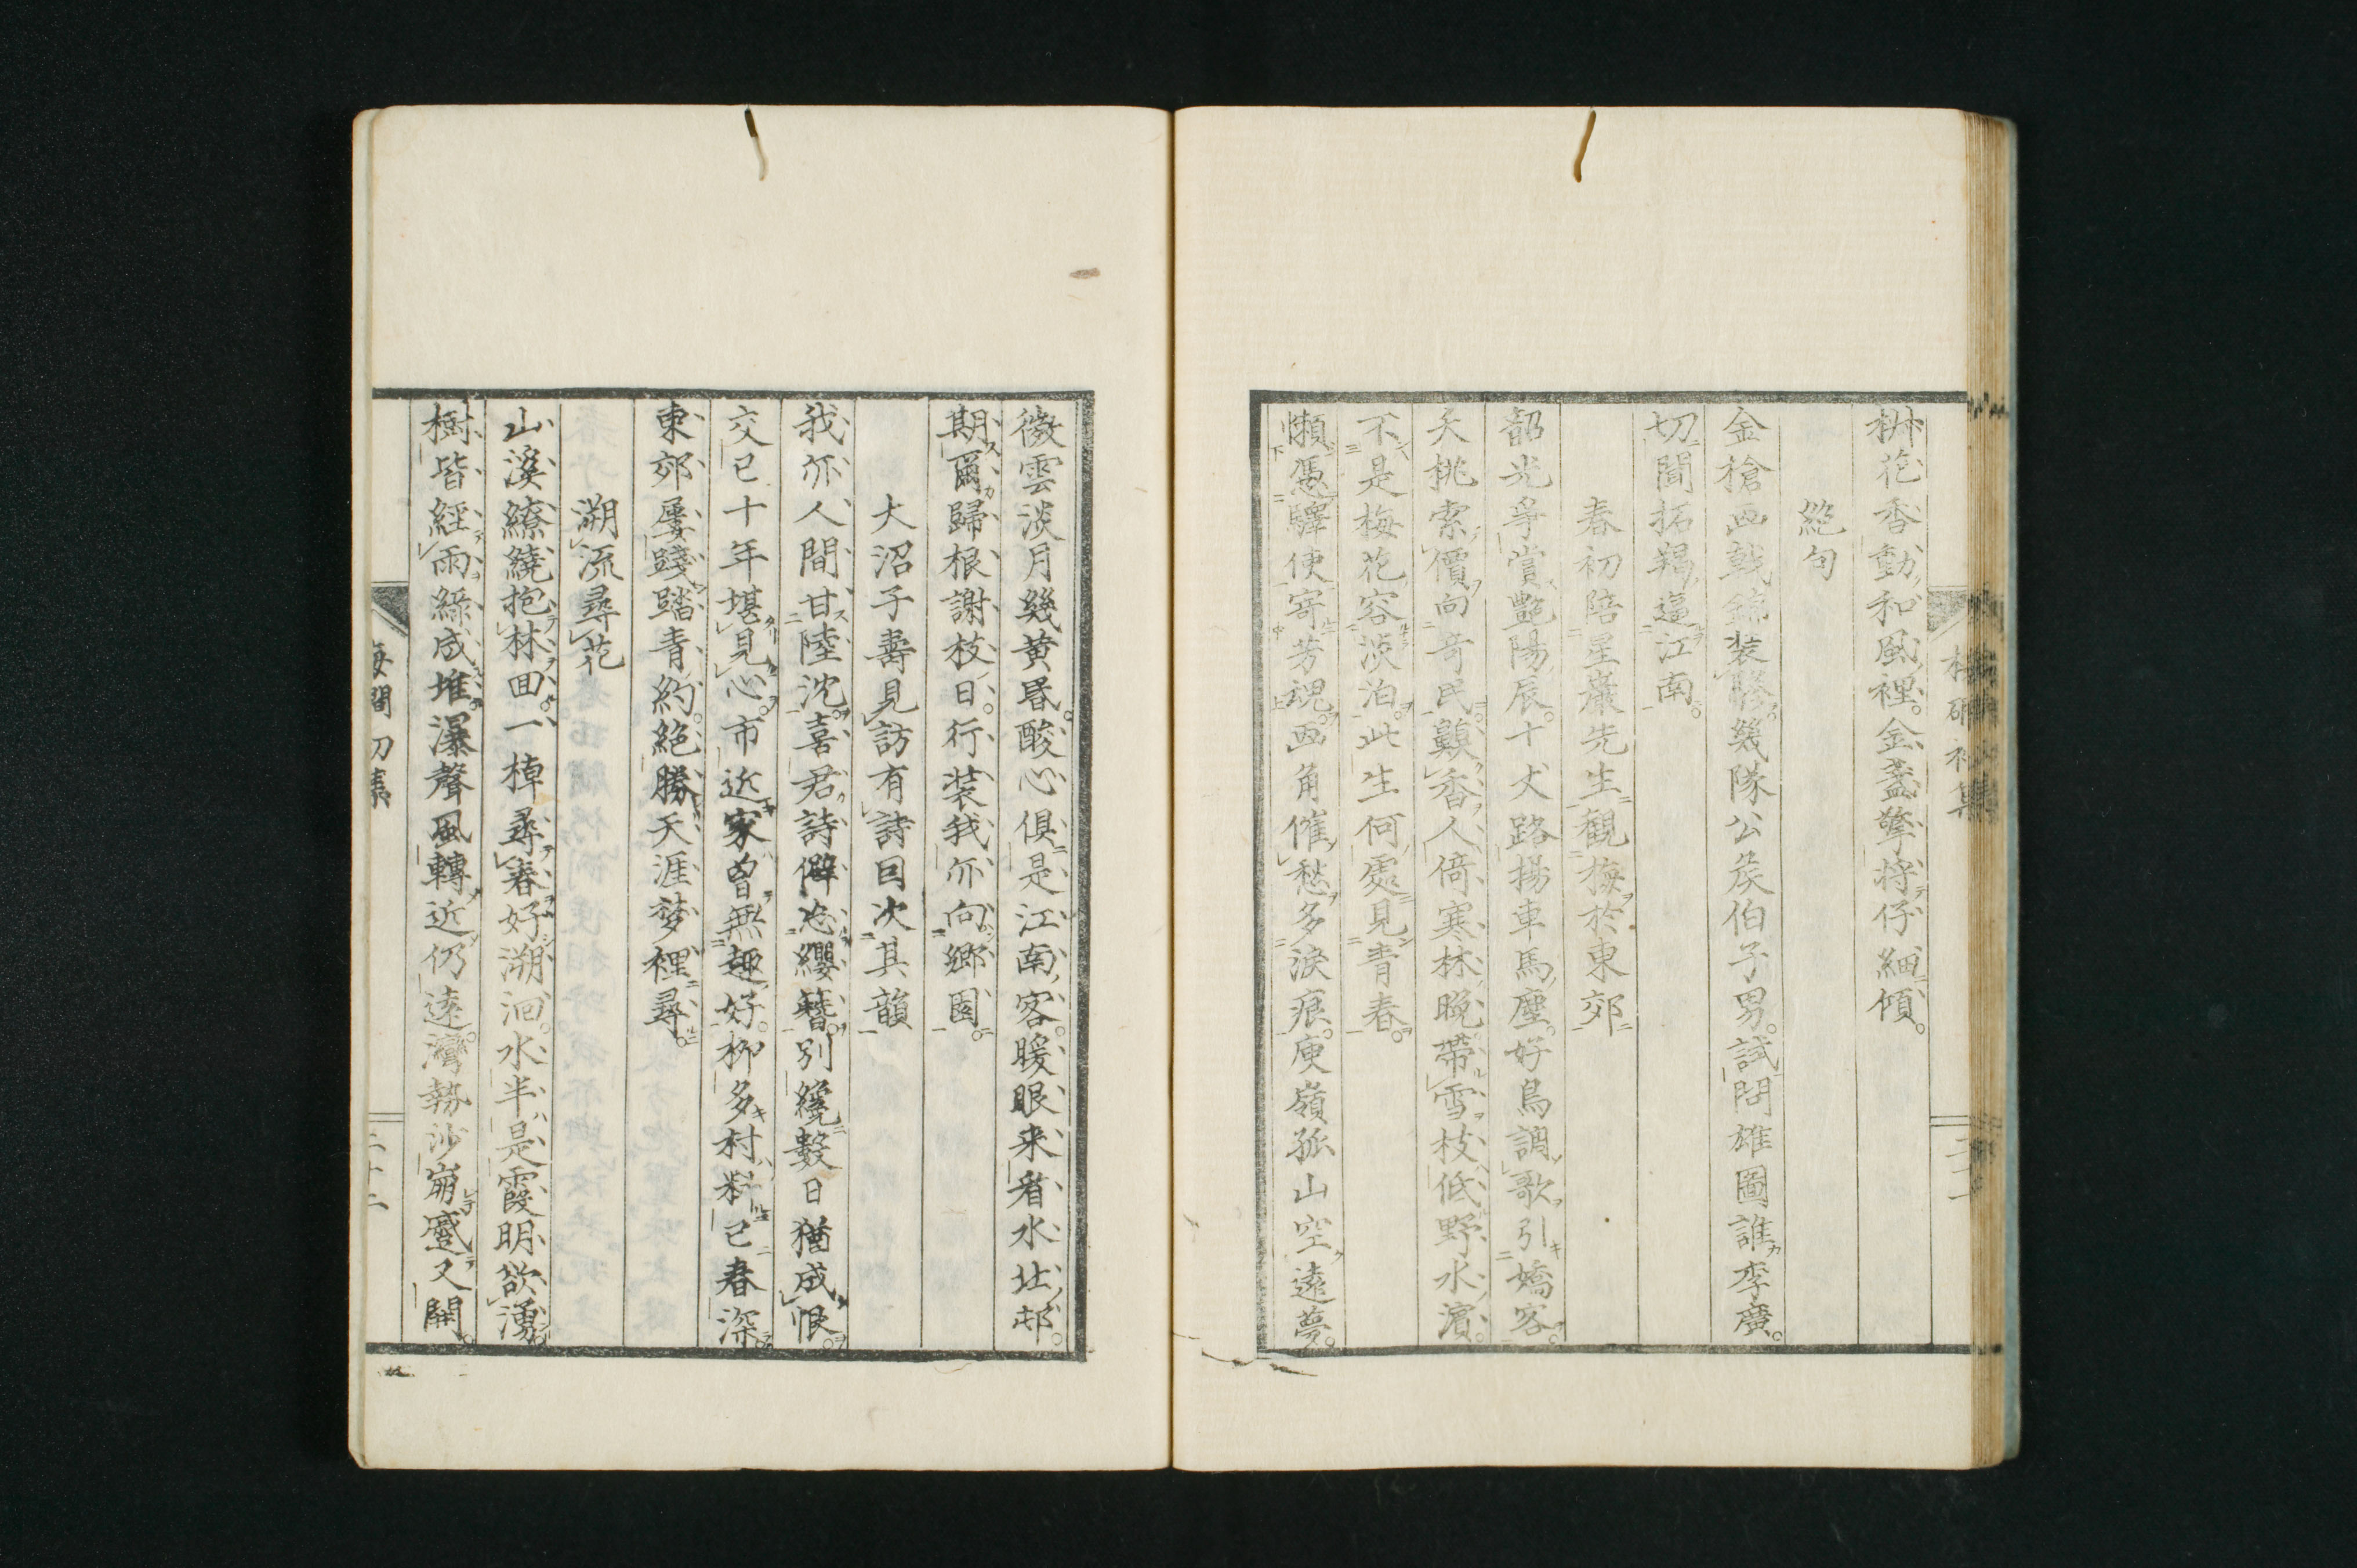 栁花香動和風裡金盞擎将仔細傾
絶句
金槍画戟錦装驂幾隊公矦伯子男試問雄圖誰李廣
切聞拓羯逼江南
春初陪星巖先生觀梅於東郊
韶光爭賞艶陽辰十犬路揚車馬塵好鳥調歌引嬌客
夭桃索價向奇民顛香人倚寒林晩帶雪枝低野水濱
不是梅花容淡泊此生何處見青春
懶憑驛使寄芳魂画角催愁多淚痕庾嶺孤山空遠夢
微雲淡月幾黄昏酸心倶是江南客暖眼来看水北邨
期爾歸根謝枝日行装我亦向郷園
大沼子壽見訪有詩因次其韻
我亦人間甘陸沈喜君詩僻忘纓簪別纔數日猶成恨
交已十年堪見心市近家曽無趣好柳多村料已春深
東郊屡踐踏青約絶勝天涯夢裡尋
溯流尋花
山溪繚繞抱林回一棹尋春好溯洄水半是霞明欲湧
樹皆經雨綠成堆瀑聲風轉近仍遠灣勢沙崩蹙又開
二十二